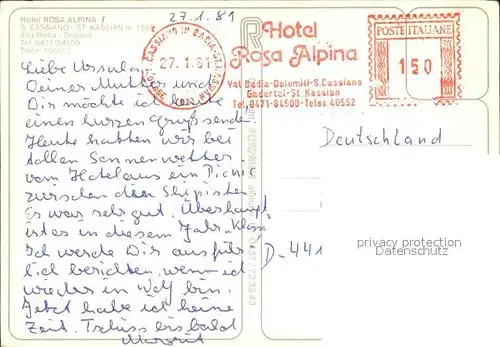 27.1.81
Hotel ROSA ALPINA
S. CASSIANO - ST. KASSIAN m. 1558
Alta Badia - Dolomiti
Tel. 0471/84500
Telex 400552
39030 S. CASSIANO IN BADIA - ST. KASSIAN
27.1.81
(BZ)
Hotel
Rosa Alpina
Val Badia-Dolomiti-S.Cassiano
Gadertal-St. Kassian
Tel. 0471-84500-Telex 40552
POSTE ITALIANE
150
Liebe Ursula,
Deiner Mutter und
Dir möchte ich heute
einen kurzen Gruß senden
Heute hatten wir bei
tollem Sonnenwetter
vom Hotel aus ein Picnic
zwischen den Skipisten
Es war sehr gut. Überhaupt
ist es in diesem Jahr „Klasse
Ich werde Dir ausführ-
lich berichten, wenn ich
wieder in Wolf bin.
Jetzt habe ich keine
Zeit. Tschüss bis bald
Margrit
Deutschland
D-441
privacy protection
Datenschutz